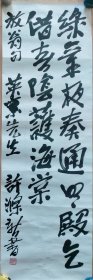 綠章夜奏通明殿乞
借春陰護海棠
放翁句 東先生 許滌新書